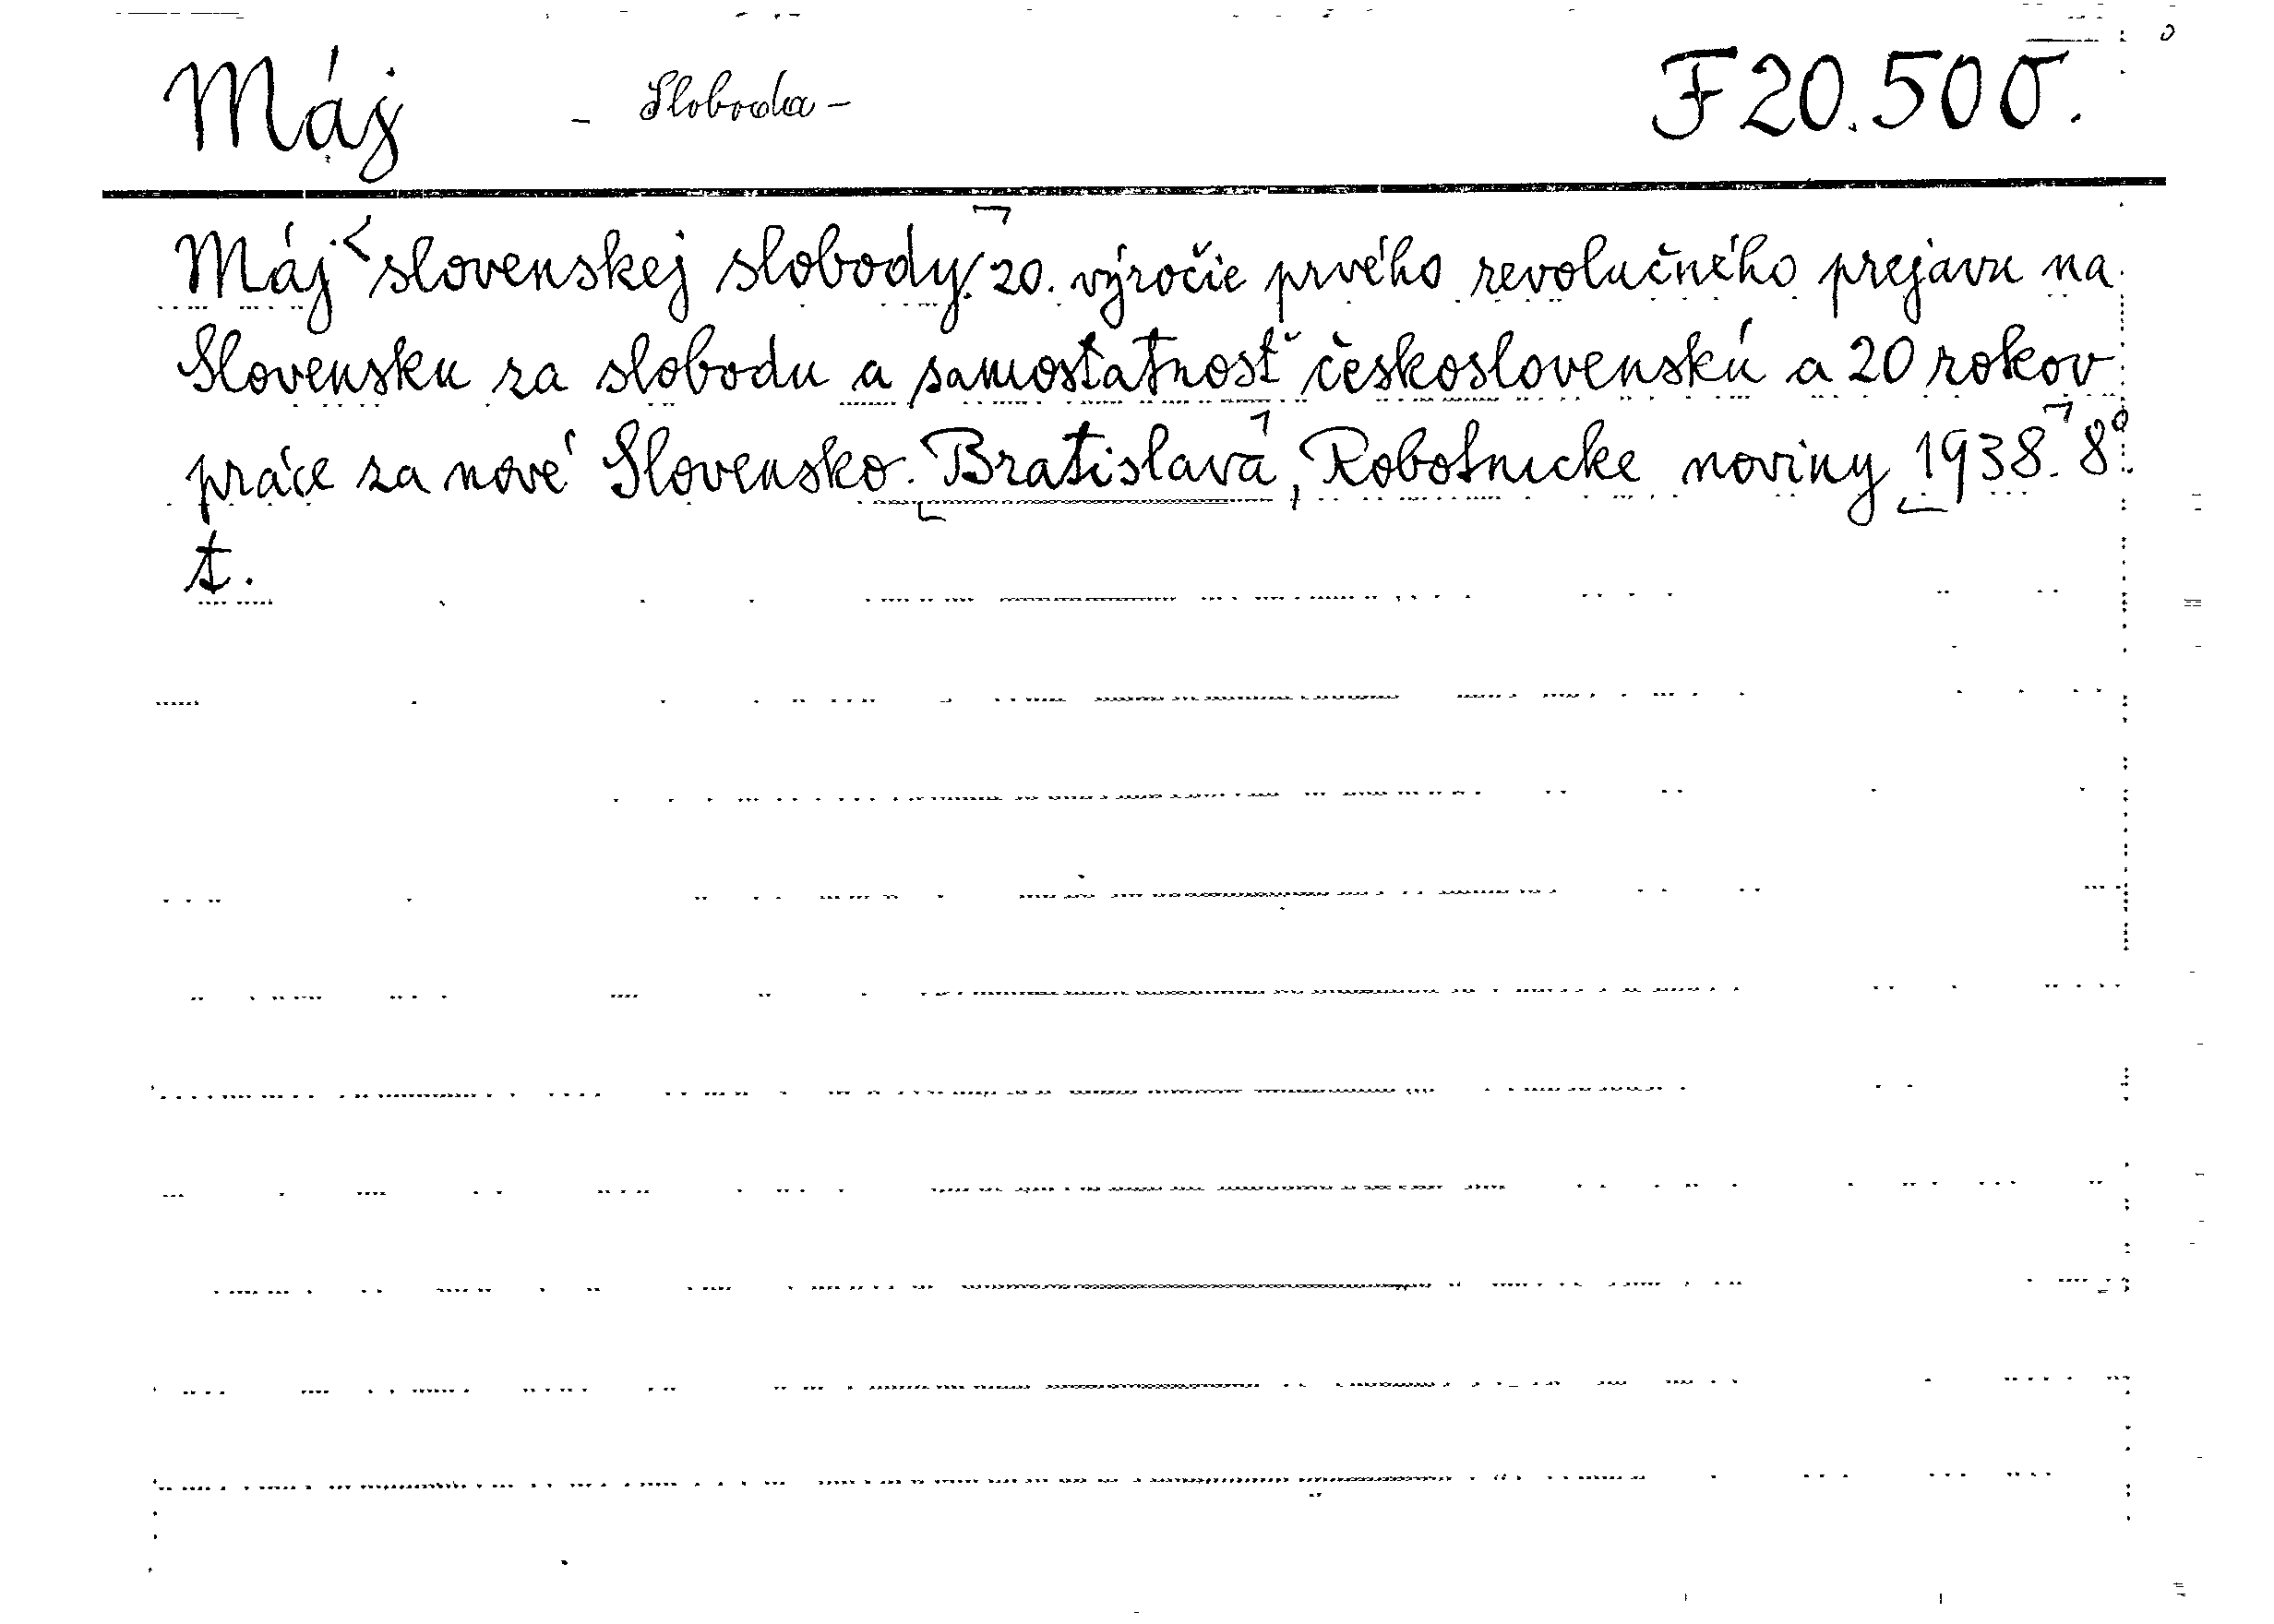 Máj - Sloboda - F 20.500.
Máj slovenskej slobody. 20. výročie prvého revolučného prejavu na
Slovensku za slobodu a samostatnosť československú a 20 rokov
práce za nové Slovensko. Bratislava, Robotnícke noviny 1938. 8°
t.